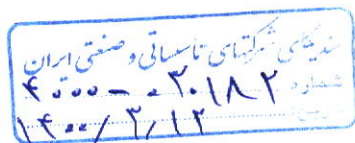 سندیکای شرکتهای تاسیساتی و صنعتی ایران
شماره ۴۰۰۰-۰۳۰۱۸۲
۱۴۰۰/۳/۱۲